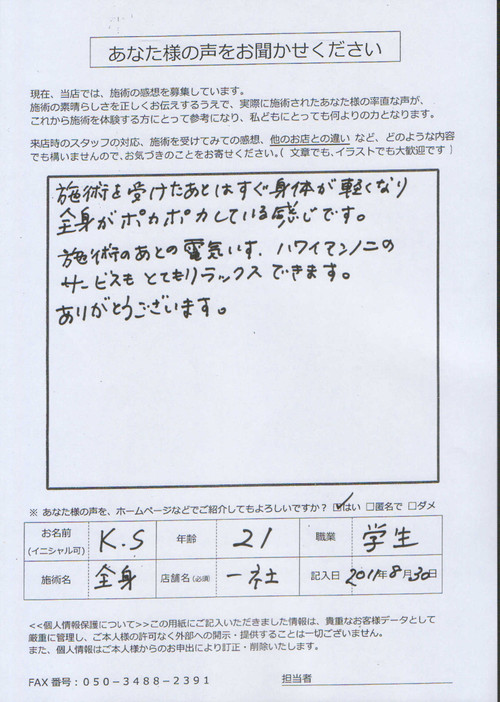 あなた様の声をお聞かせください
現在、当店では、施術の感想を募集しています。
施術の素晴らしさを正しくお伝えするうえで、実際に施術されたあなた様の率直な声が、
これから施術を体験する方にとって参考になり、私どもにとっても何よりの力となります。
来店時のスタッフの対応、施術を受けてみての感想、他のお店との違い など、どのような内容
でも構いませんので、お気づきのことをお寄せください。( 文章でも、イラストでも大歓迎です )
施術を受けたあとはすぐ身体が軽くなり
全身がポカポカしている感じです。
施術のあとの電気いす、ハワイアンノニの
サービスもとてもリラックスできます。
ありがとうございます。
※ あなた様の声を、ホームページなどでご紹介してもよろしいですか? ☑はい □匿名で □ダメ
お名前 (イニシャル可) K.S 年齢 21 職業 学生
施術名 全身 店舗名 (必須) 一社 記入日 2011年8月30日
<<個人情報保護について>>この用紙にご記入いただきました情報は、貴重なお客様データとして
厳重に管理し、ご本人様の許可なく外部への開示・提供することは一切ございません。
また、個人情報はご本人様からのお申出により訂正・削除いたします。
FAX 番号:050-3488-2391 担当者